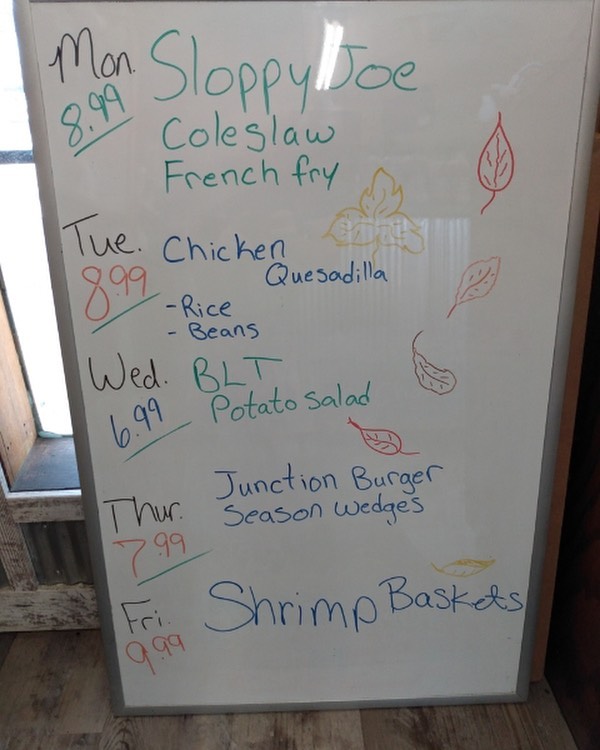 Mon. Sloppy Joe
8.99 Coleslaw
French fry
Tue. Chicken
8.99 Quesadilla
- Rice
- Beans
Wed. BLT
6.99 Potato salad
Junction Burger
Thur. Season wedges
7.99
Fri. Shrimp Baskets
9.99